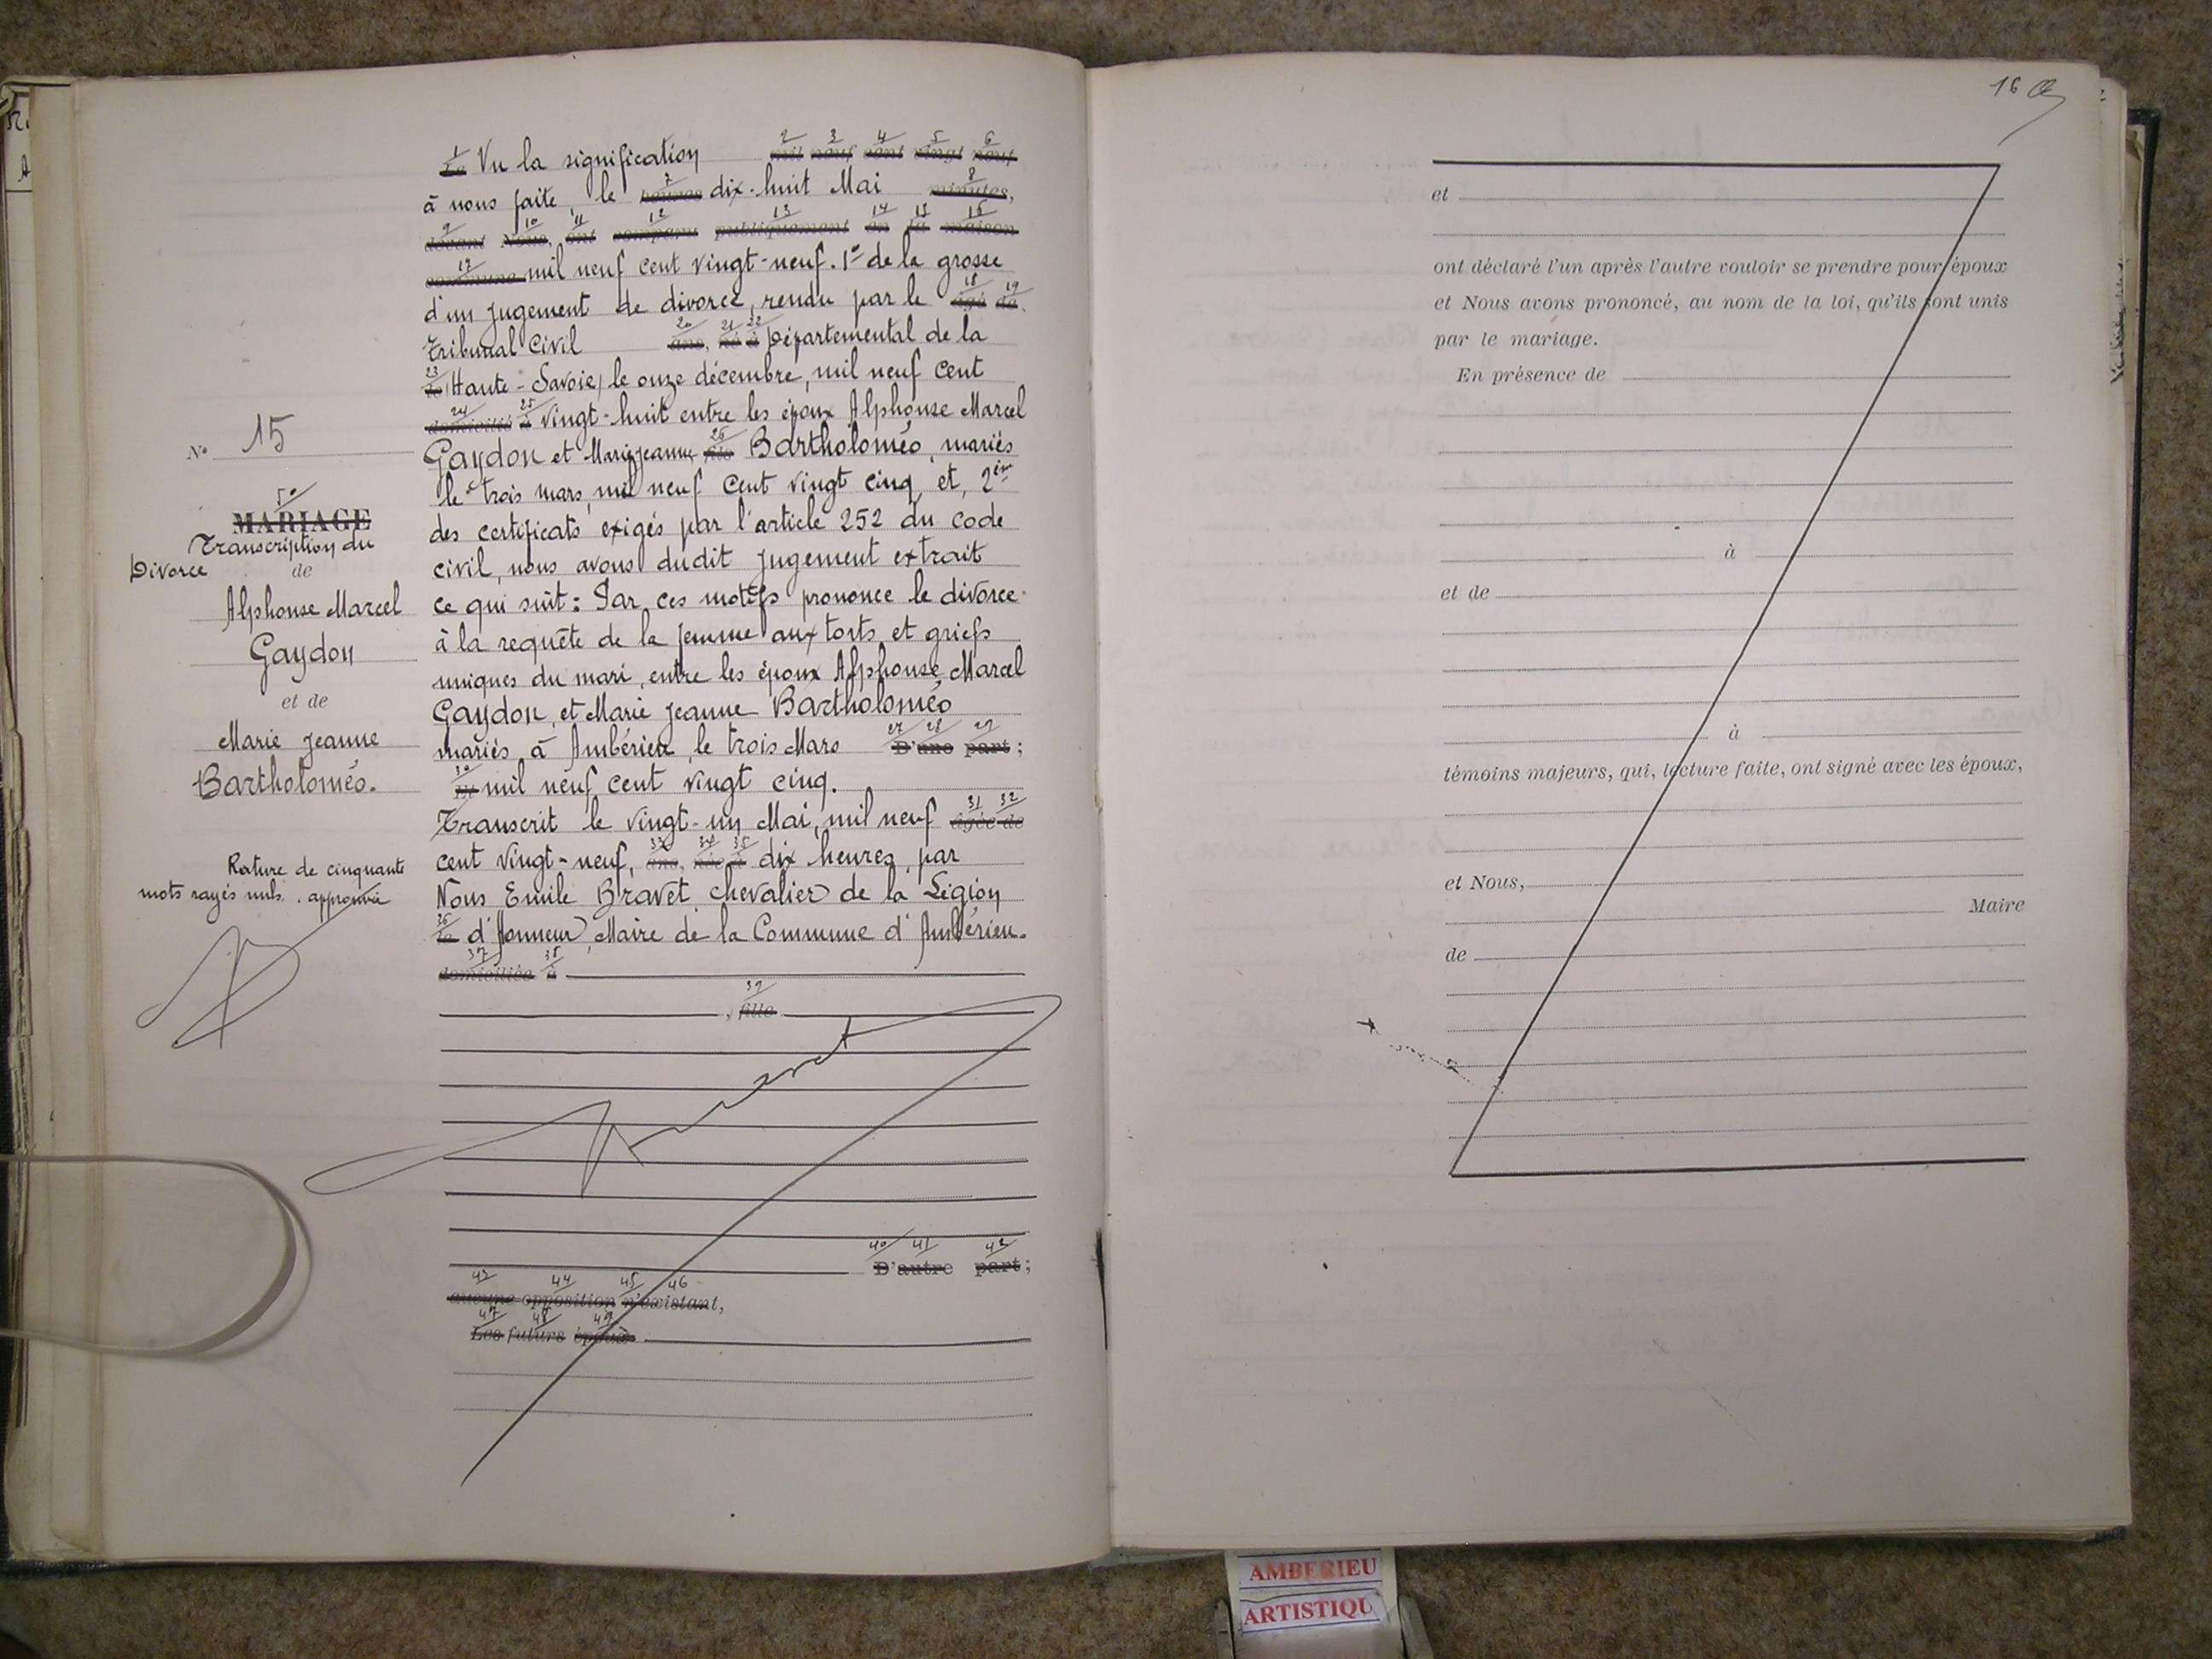 N° 15
50
MARIAGE
Transcription du
Divorce
de
Alphonse Marcel
Gaydon
et de
Marie Jeanne
Bartholoméo.
Rature de cinquante
mots rayés nuls. approuvée
1 Le Vu la signification 2 mil 3 neuf 4 cent 5 vingt 6 neuf
à nous faite, le 7 heures dix-huit Mai 8 minutes,
9 devant 10 Nous, 11 ont 12 comparu 13 publiquement 14 en 15 la 16 maison
17 commune mil neuf cent vingt-neuf. 1° de la grosse
d'un jugement de divorce, rendu par le 18 âgé 19 de
Tribunal Civil 20 ans, 21 né 22 à Départemental de la
23 le Haute-Savoie, le onze décembre, mil neuf cent
24 domicilié 25 à vingt-huit entre les époux Alphonse Marcel
Gaydon et Marie Jeanne 26 fils Bartholoméo, mariés
le trois mars, mil neuf cent vingt cinq, et, 2ème
des certificats exigés par l'article 252 du code
civil, nous avons dudit jugement extrait
ce qui suit : Par ces motifs prononce le divorce
à la requête de la femme aux torts et griefs
uniques du mari, entre les époux Alphonse Marcel
Gaydon, et Marie Jeanne Bartholoméo
mariés à Ambérieu, le trois Mars 27 D' 28 une 29 part ;
30 Et mil neuf cent vingt cinq.
Transcrit le vingt-un Mai, mil neuf 31 âgée 32 de
cent vingt-neuf, 33 ans, 34 née 35 à dix heures, par
Nous Emile Bravet, chevalier de la Légion
36 le d'Honneur, Maire de la Commune d'Ambérieu.
37 domiciliée 38 à
39 , fille
Bravet
40 D' 41 autre 42 part ;
43 aucune 44 opposition 45 n' 46 existant,
47 Les 48 futurs 49 époux
16
et
ont déclaré l'un après l'autre vouloir se prendre pour époux
et Nous avons prononcé, au nom de la loi, qu'ils sont unis
par le mariage.
En présence de
à
et de
à
témoins majeurs, qui, lecture faite, ont signé avec les époux,
et Nous,
Maire
de
AMBERIEU
ARTISTIQU